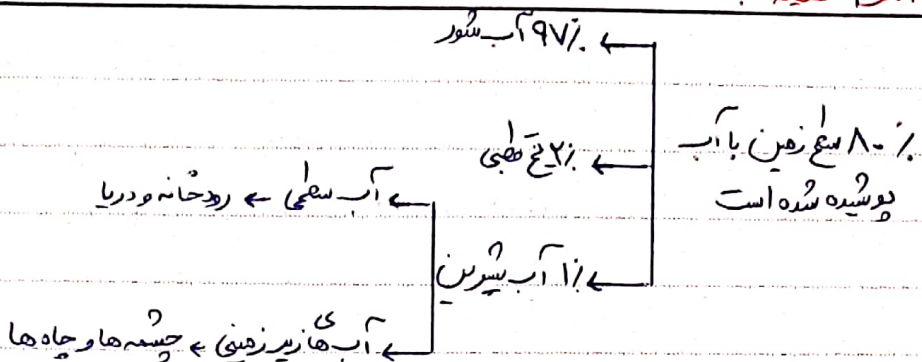 ٪۸۰ سطح زمین با آب
پوشیده شده است
٪۹۷ آب شور
٪۲ یخ قطبی
٪۱ آب شیرین
آب سطحی ← رودخانه و دریا
آب های زیرزمینی ← چشمه ها و چاه ها